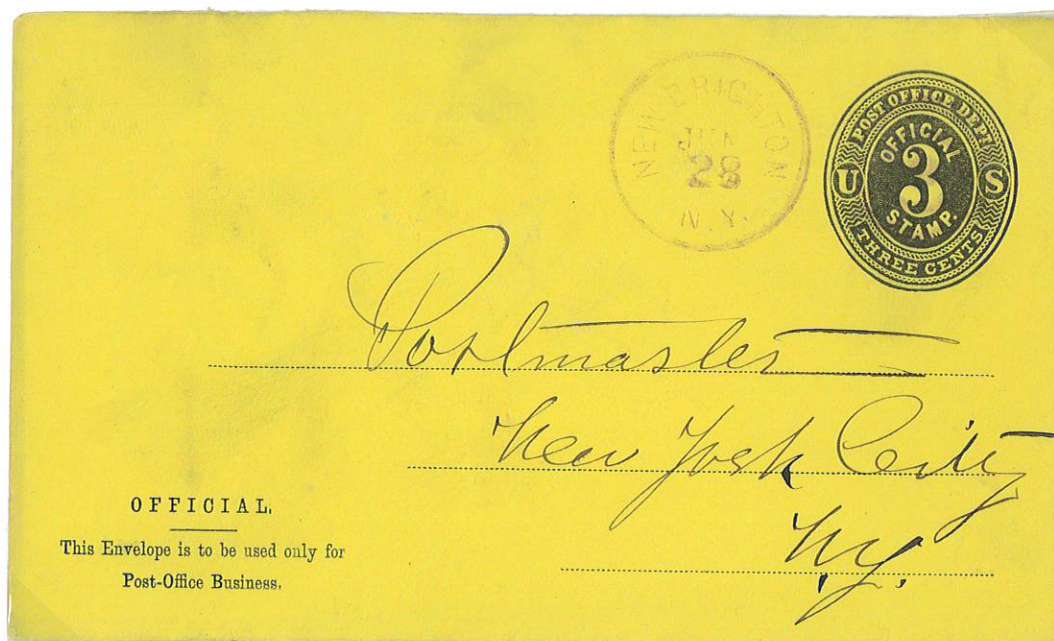 NEW BRIGHTON
JUN
28
N.Y.
POST OFFICE DEPT
OFFICIAL
U 3 S
STAMP.
THREE CENTS
Postmaster
New York City
N.Y.
OFFICIAL.
This Envelope is to be used only for
Post-Office Business.